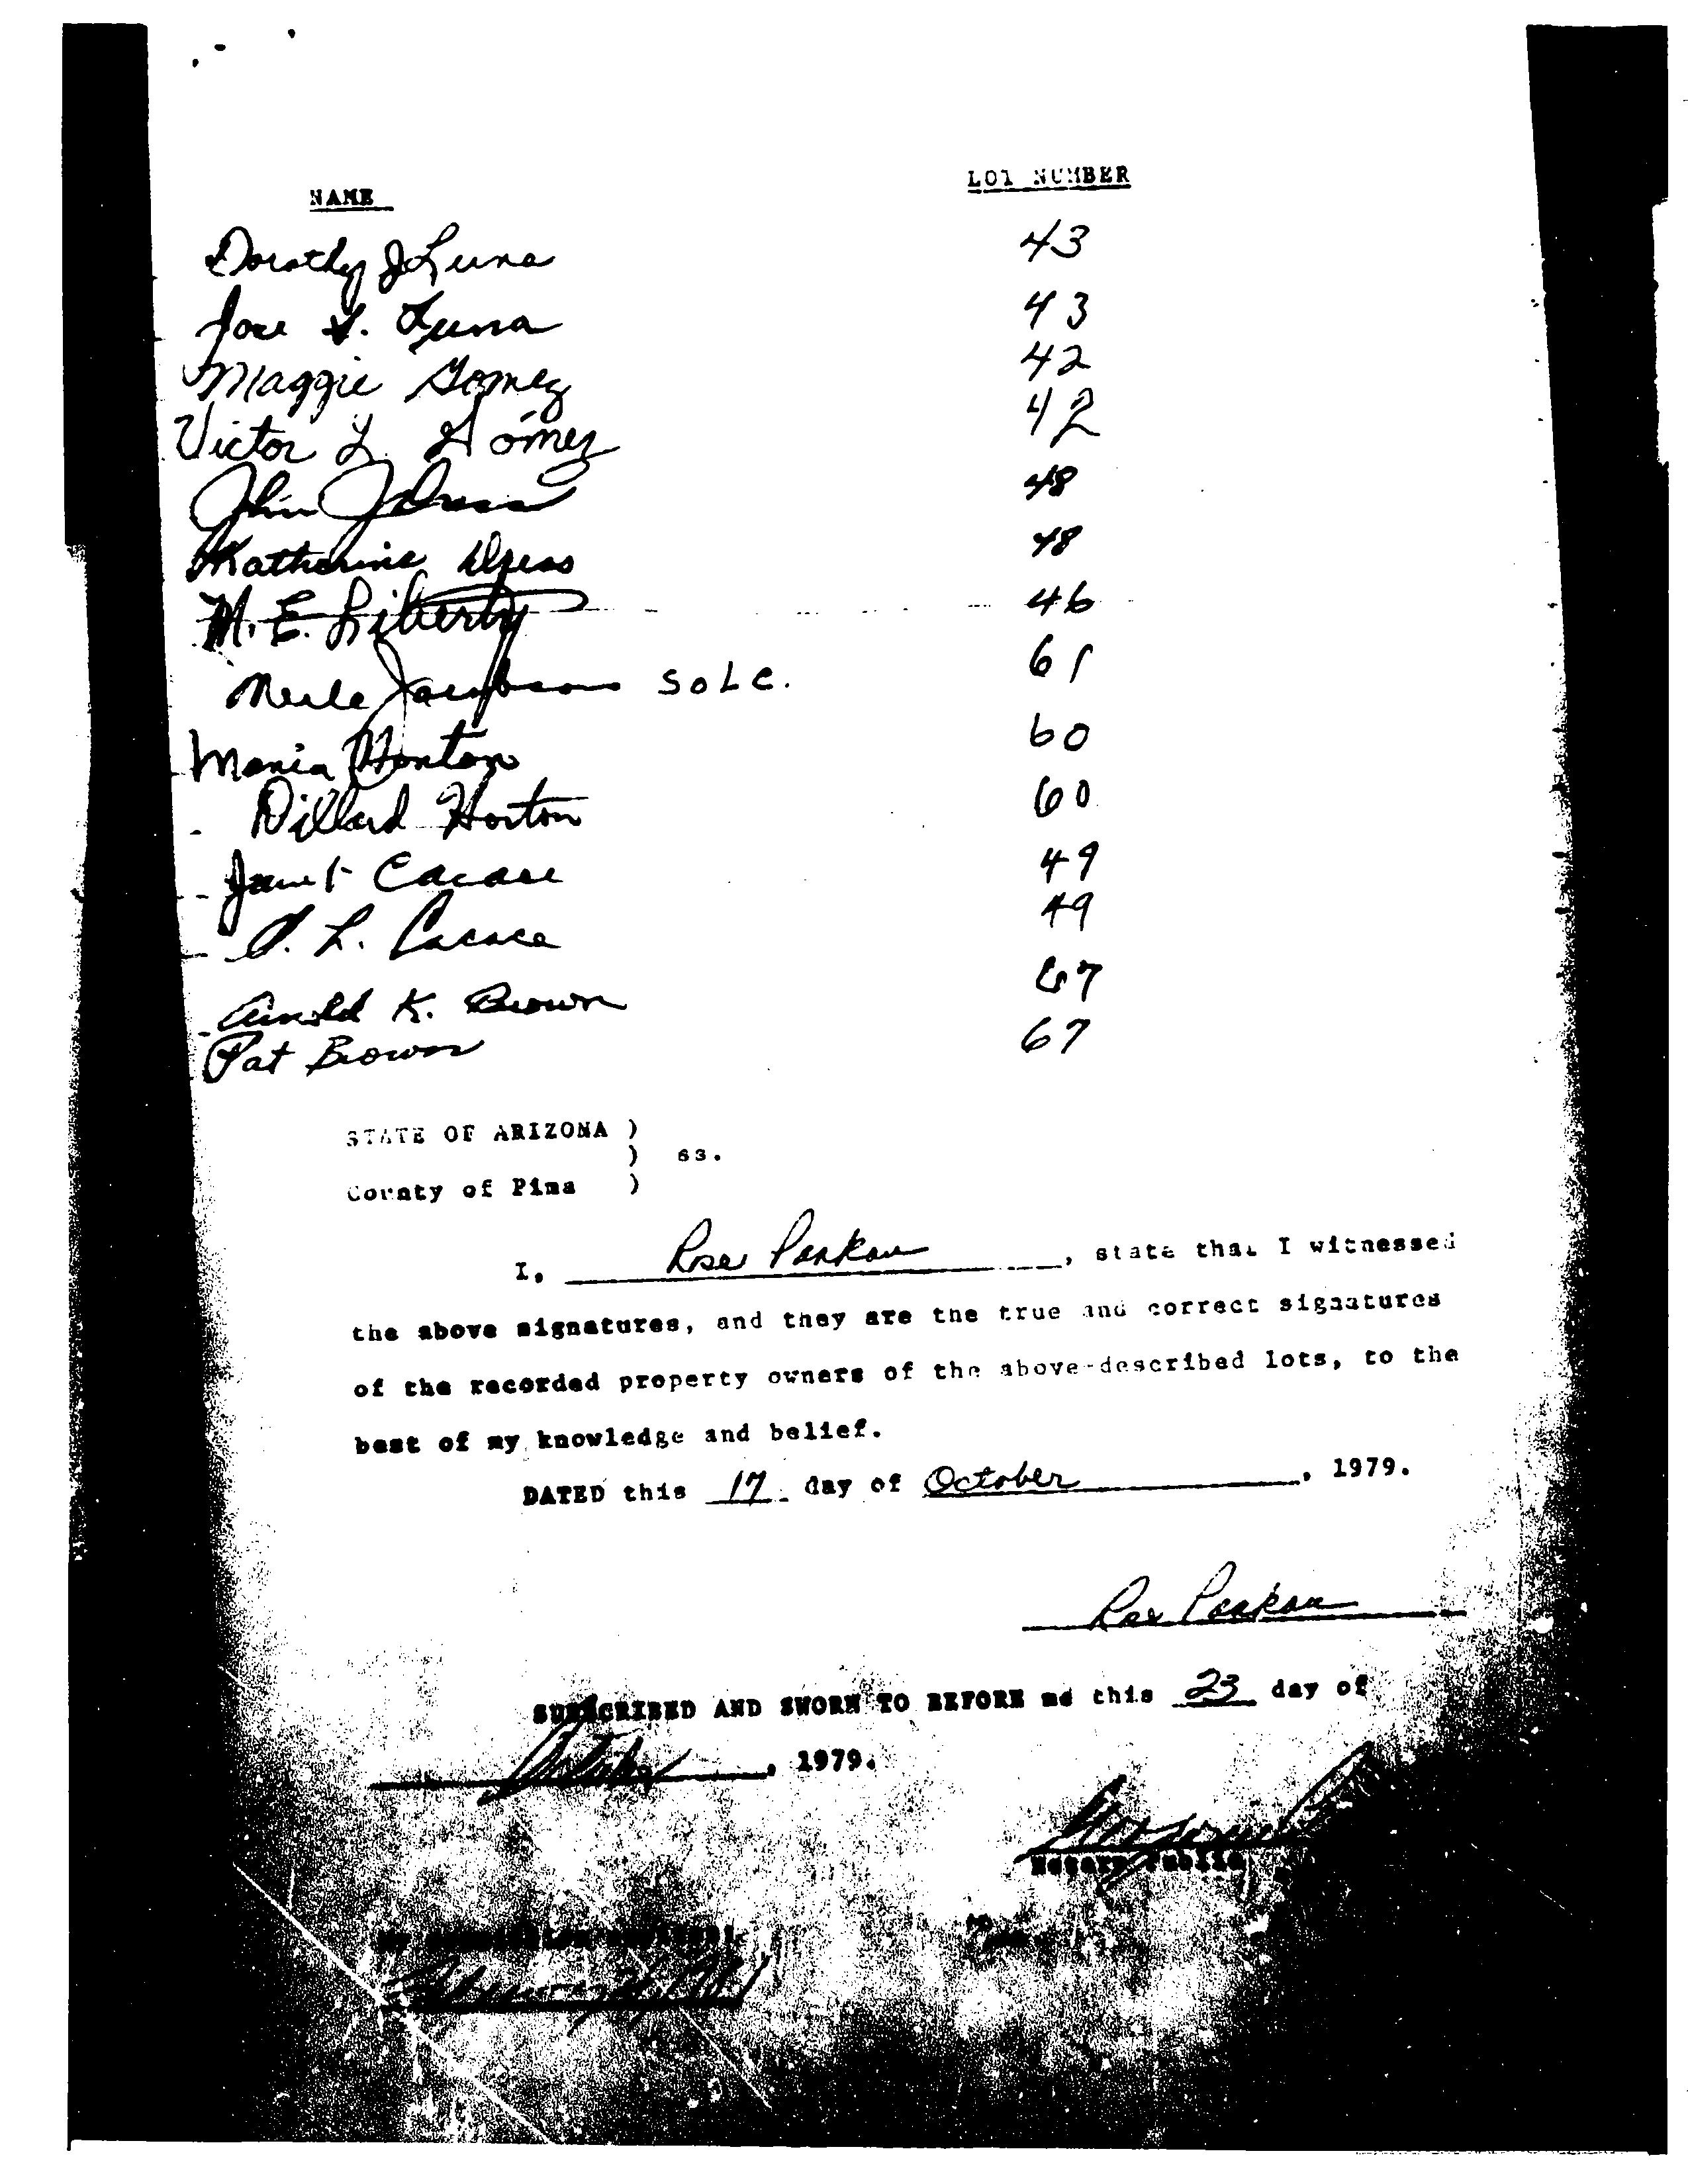 NAME LOT NUMBER
Dorothy J Luna 43
Jose S. Luna 43
Maggie Gomez 42
Victor L. Gómez 42
John J Dress 48
Katherine Dress 48
M. E. Liberty 46
Merle Jacobson SOLE. 61
Maria Horton 60
Dillard Horton 60
Janet Cacace 49
L. Cacace 49
Arnold K. Brown 67
Pat Brown 67
STATE OF ARIZONA )
) ss.
County of Pima )
I, Rose Pankau, state that I witnessed
the above signatures, and they are the true and correct signatures
of the recorded property owners of the above-described lots, to the
best of my knowledge and belief.
DATED this 17 day of October, 1979.
Rose Pankau
SUBSCRIBED AND SWORN TO BEFORE me this 23 day of
October, 1979.
Notary Public